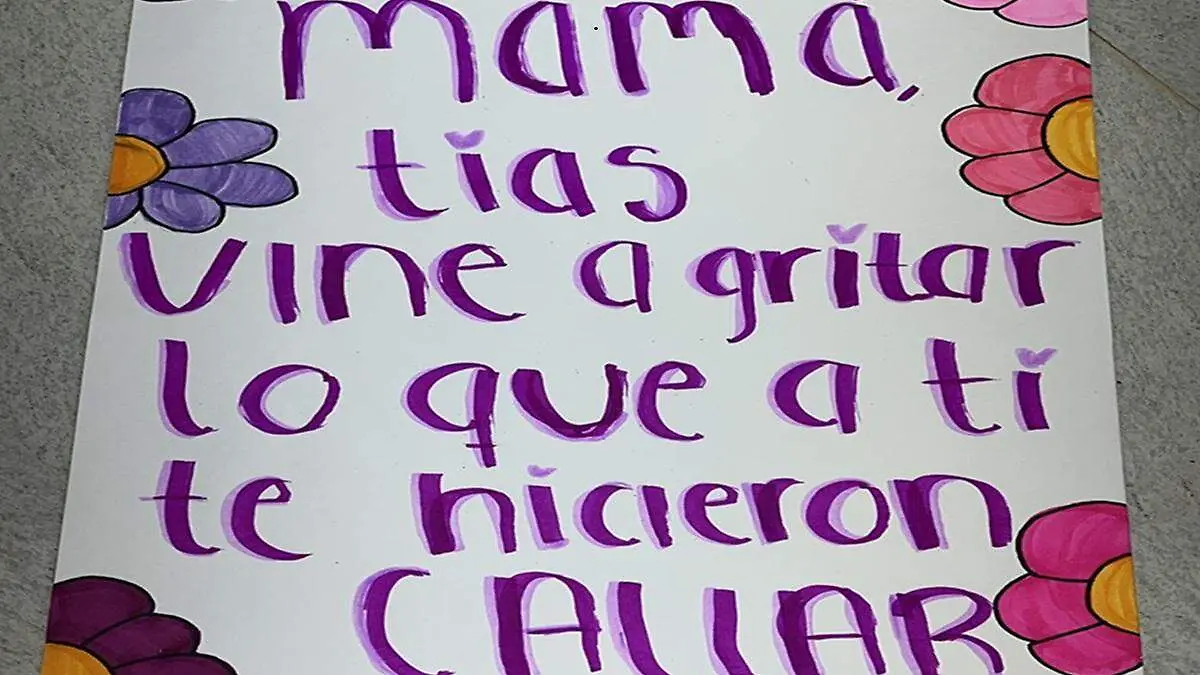 mama,
tias
vine a gritar
lo que a ti
te hicieron
CALLAR